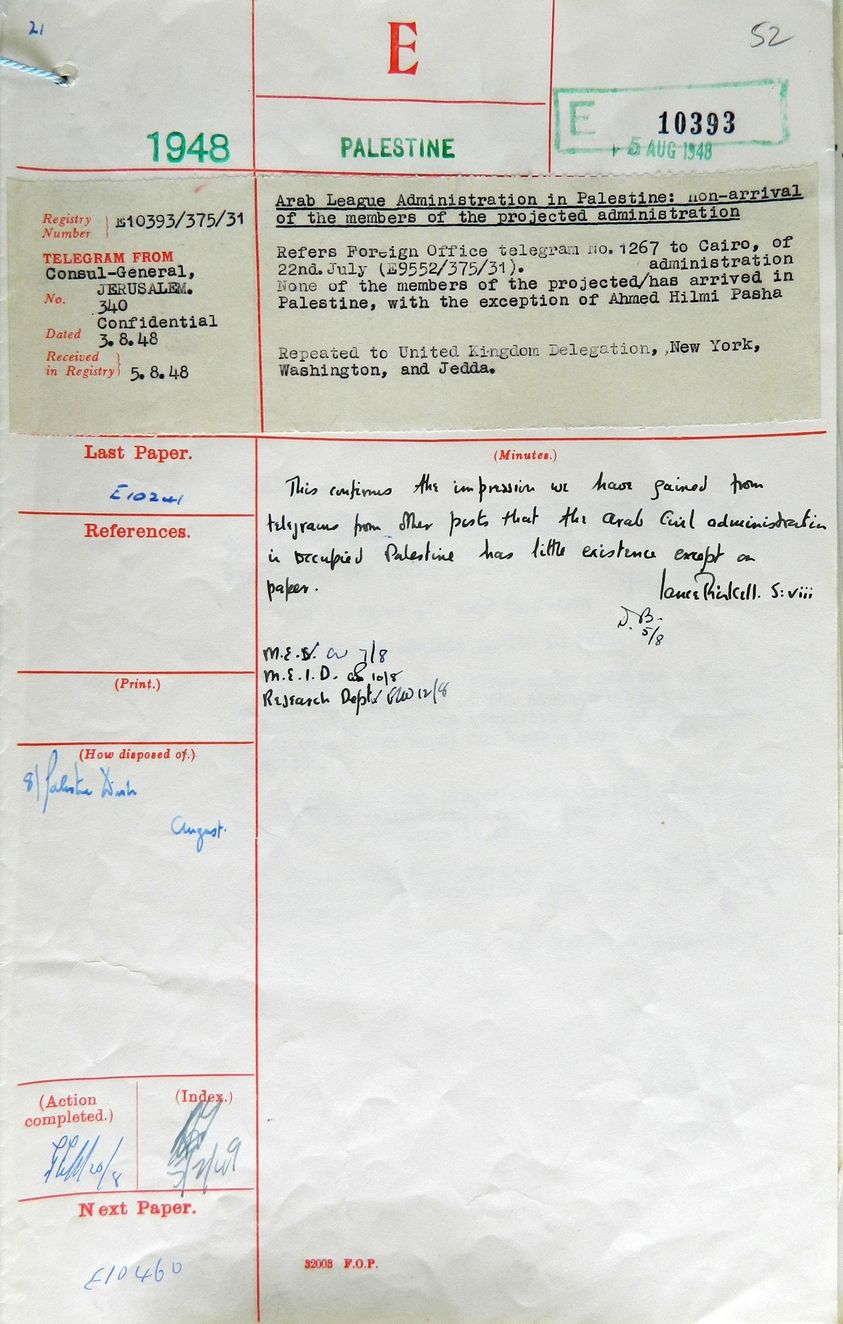 21
E
52
1948
PALESTINE
E
10393
5 AUG 1948
Registry Number
E10393/375/31
TELEGRAM FROM
Consul-General,
JERUSALEM.
No.
340
Confidential
Dated
3.8.48
Received
in Registry
5.8.48
Arab League Administration in Palestine: non-arrival
of the members of the projected administration
Refers Foreign Office telegram No.1267 to Cairo, of
22nd.July (E9552/375/31).
administration
None of the members of the projected/has arrived in
Palestine, with the exception of Ahmed Hilmi Pasha
Repeated to United Kingdom Delegation, ,New York,
Washington, and Jedda.
Last Paper.
E10241
References.
(Print.)
(How disposed of.)
August.
(Action
completed.)
20/8
(Index.)
Next Paper.
E10460
(Minutes.)
This confirms the impression we have gained from
telegrams from other posts that the Arab Civil administration
in occupied Palestine has little existence except on
paper.
5:viii
5/8
M.E.S. 7/8
M.E.I.D. 10/8
Research Dept 12/8
32003 F.O.P.